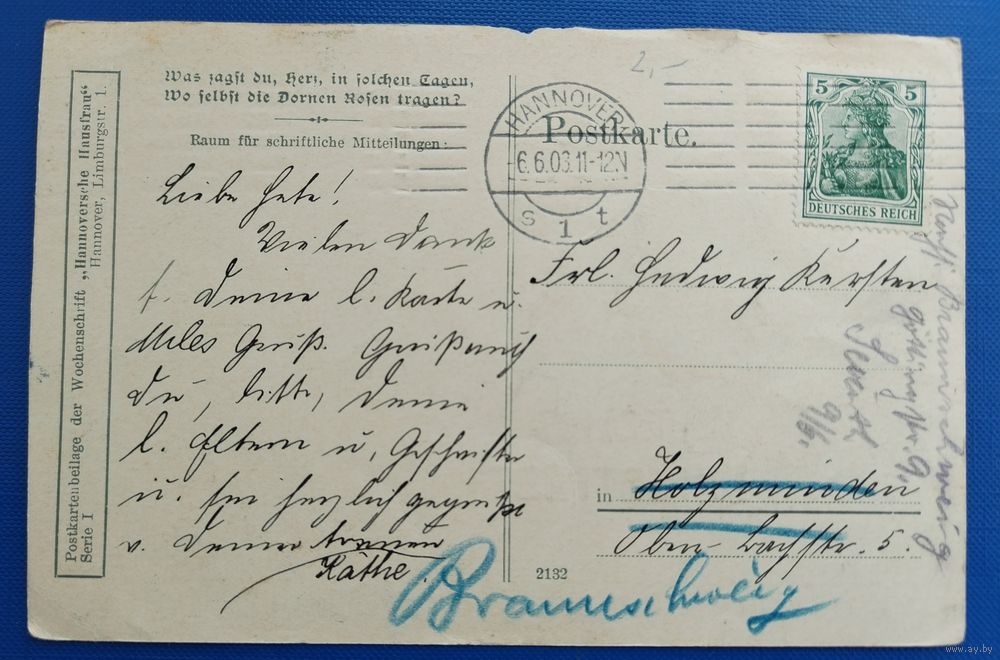 Was sagst du, Herz, in solchen Tagen,
Wo selbst die Dornen Rosen tragen?
Raum für schriftliche Mitteilungen:
Postkartenbeilage der Wochenschrift „Hannoversche Hausfrau“
Serie I
Hannover, Limburgstr. 1.
Liebe Hete!
Vielen Dank
f. Deine l. Karte u.
Alles Gruß. Grüße auch
Du, bitte, Deine
l. Eltern u. Geschwister
u. sei herzlich gegrüßt
v. Deiner treuen
Käthe.
2,-
HANNOVER
6.6.03.11-12N
s 1 t
Postkarte.
5 5
DEUTSCHES REICH
Frl. Hedwig Kersten
in Holzminden
Ober-Bachstr. 5.
Braunschweig
2132
Braunschweig
9/6.
www.ay.by